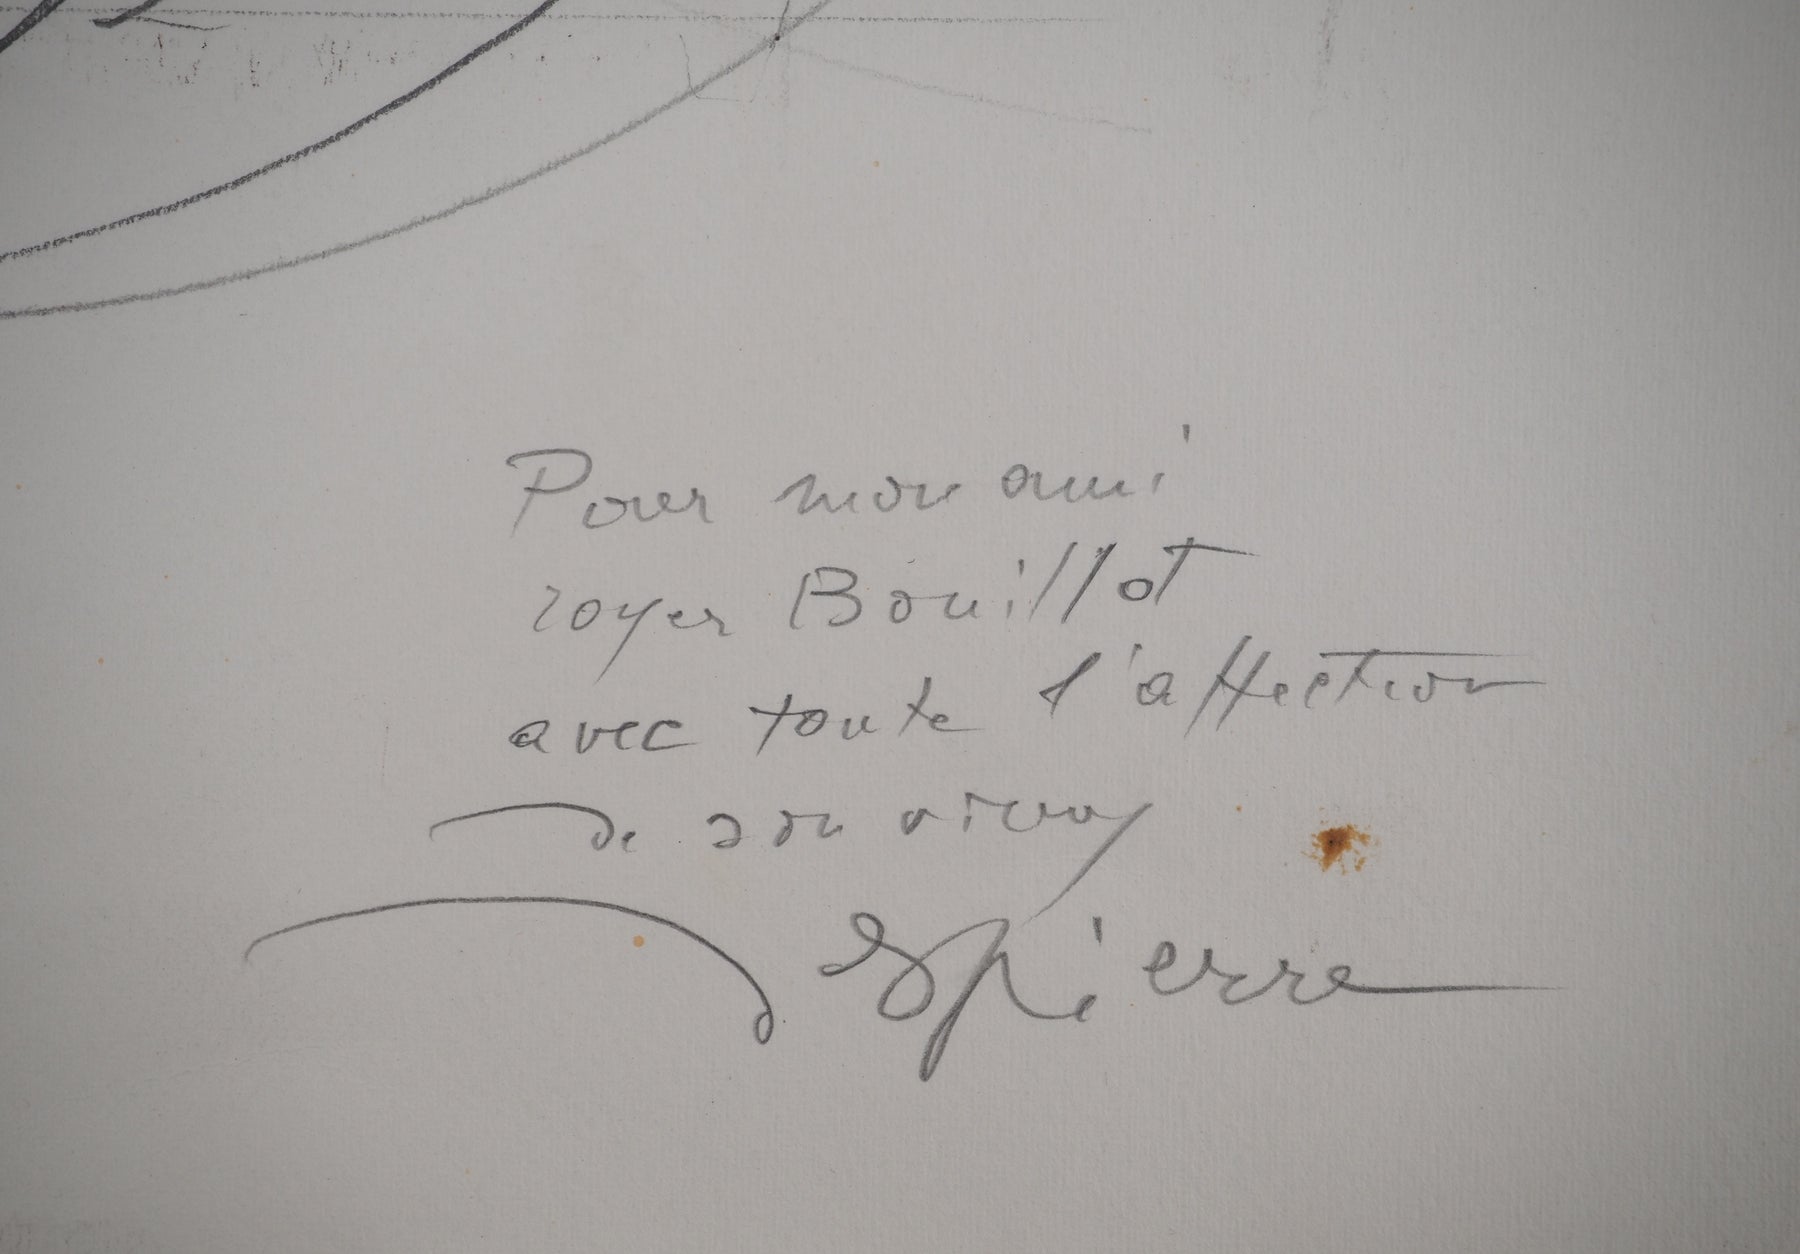 Pour mon ami
royer Bouillot
avec toute l'affection
de son vieux
Spierre